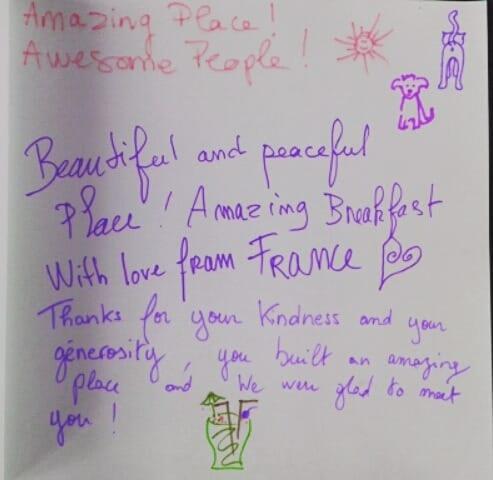 Amazing Place!
Awesome People!
Beautiful and peaceful
Place! Amazing Breakfast
With love from FRANCE
Thanks for your Kindness and your
génerosity, you built an amazing
place and We were glad to meet
you!